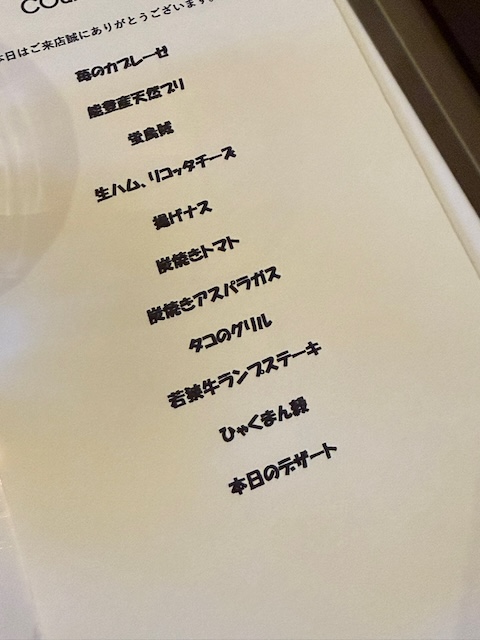 COU
本日はご来店誠にありがとうございます。
苺のカプレーゼ
能登産天然ブリ
蛍烏賊
生ハム、リコッタチーズ
揚げナス
炭焼きトマト
炭焼きアスパラガス
タコのグリル
若狭牛ランプステーキ
ひゃくまん穀
本日のデザート